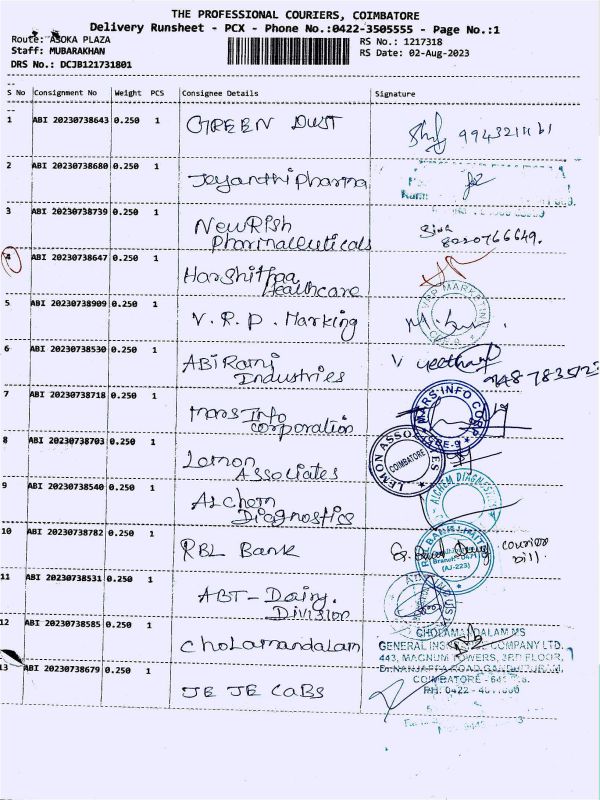 THE PROFESSIONAL COURIERS, COIMBATORE
Delivery Runsheet - PCX - Phone No.:0422-3505555 - Page No.:1
Route: ASOKA PLAZA
RS No.: 1217318
Staff: MUBARAKHAN
RS Date: 02-Aug-2023
DRS No.: DCJB121731801
S No Consignment No Weight PCS Consignee Details Signature
1 ABI 20230738643 0.250 1 GREEN DUST
2 ABI 20230738680 0.250 1 Jeyanthi pharma
3 ABI 20230738739 0.250 1 NewRish
pharmaceuticals
8220766649.
4 ABI 20230738647 0.250 1 Harshithaa
Healthcare
5 ABI 20230738909 0.250 1 V. R. P. Marking
6 ABI 20230738530 0.250 1 ABiRami
Industries
7 ABI 20230738718 0.250 1 Mars Info
corporation
MARS INFO CORP
CBE-9
8 ABI 20230738703 0.250 1 Lemon
Associates
LEMON ASSOCIATES
COIMBATORE
9 ABI 20230738540 0.250 1 ALchem
Diagnostics
ALCHEM DIAGNOSTICS
10 ABI 20230738782 0.250 1 RBL Bank
courier
bill.
RBL BANK LIMITED
(AJ-223)
11 ABI 20230738531 0.250 1 ABT-Dairy.
Division
12 ABI 20230738585 0.250 1 cholamandalam
CHOLAMANDALAM MS
GENERAL INSURANCE COMPANY LTD.
443, MAGNUM TOWERS, 3RD FLOOR,
Dr. NANJAPPA ROAD, GANDHIPURAM,
COIMBATORE
PH: 0422
13 ABI 20230738679 0.250 1 JE JE CABS